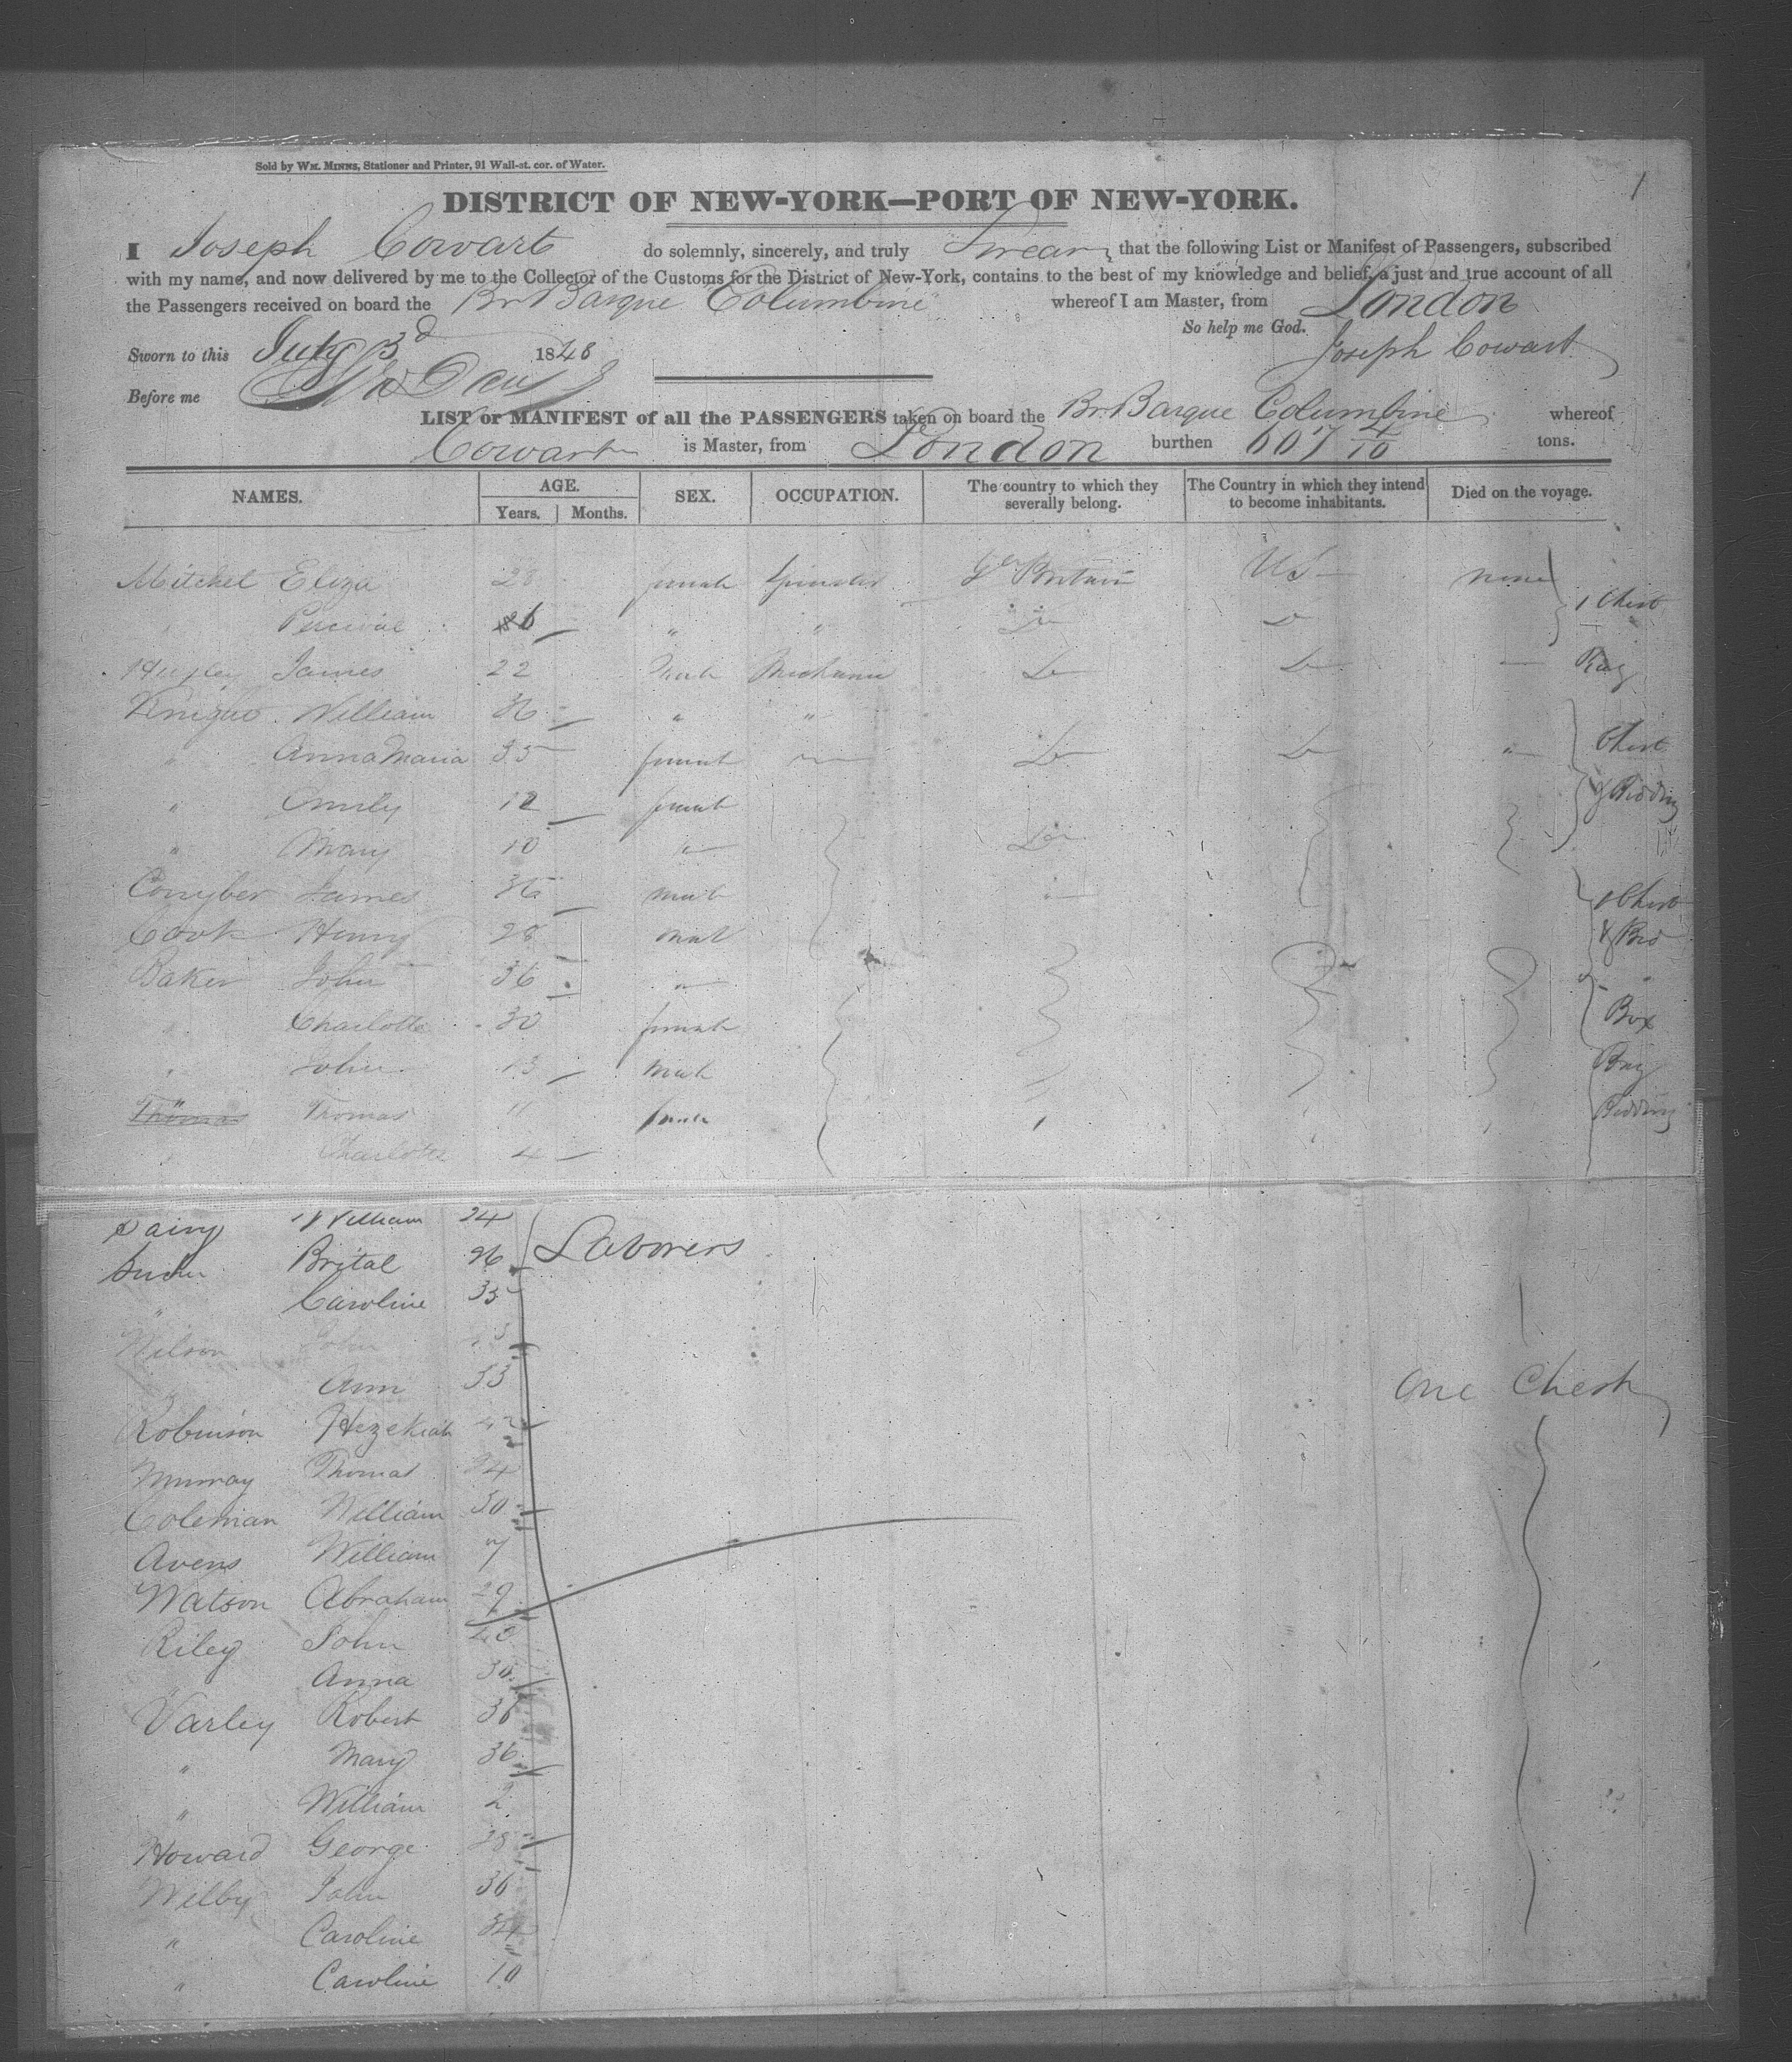 1
Sold by WM. MINNS, Stationer and Printer, 91 Wall-st. cor. of Water.
DISTRICT OF NEW-YORK—PORT OF NEW-YORK.
I Joseph Cowart do solemnly, sincerely, and truly Swear that the following List or Manifest of Passengers, subscribed
with my name, and now delivered by me to the Collector of the Customs for the District of New-York, contains to the best of my knowledge and belief, a just and true account of all
the Passengers received on board the Br Barque Columbine whereof I am Master, from London
So help me God.
Sworn to this July 3d 1848 Joseph Cowart
Before me
LIST or MANIFEST of all the PASSENGERS taken on board the Br. Barque Columbine whereof
Cowart is Master, from London burthen 607 4/10 tons.
NAMES. AGE. SEX. OCCUPATION. The country to which they severally belong. The Country in which they intend to become inhabitants. Died on the voyage.
Years. Months.
Mitchel Eliza 28 female Spinster Gt Britain US none
" Percival 6 " " Do Do 1 Chest
James 22 Male Mechanic Do Do — Bag
William 36 " "
" Anna Maria 35 female — Do Do " Chest
" Emily 12 female & Bedding
" Mary 10 " Do
Conyber James 36 male 1 Chest
Cook Henry 28 male & Bed
Baker John 36 "
" Charlotte 30 female Box
" John 13 male Bag
Thomas Thomas 11 Bedding
" Charlotte 4
William 24 Laborers
Brital 26
" Caroline 35
Wilson John
" Ann 33 One Chest
Robinson Hezekiah 42
Murray Thomas 24
Coleman William 30
Avens William 7
Watson Abraham 29
Riley John 40
Anna 30
Varley Robert 36
" Mary 36
" William 2
Howard George 28
Wilby John 36
" Caroline 34
" Caroline 10